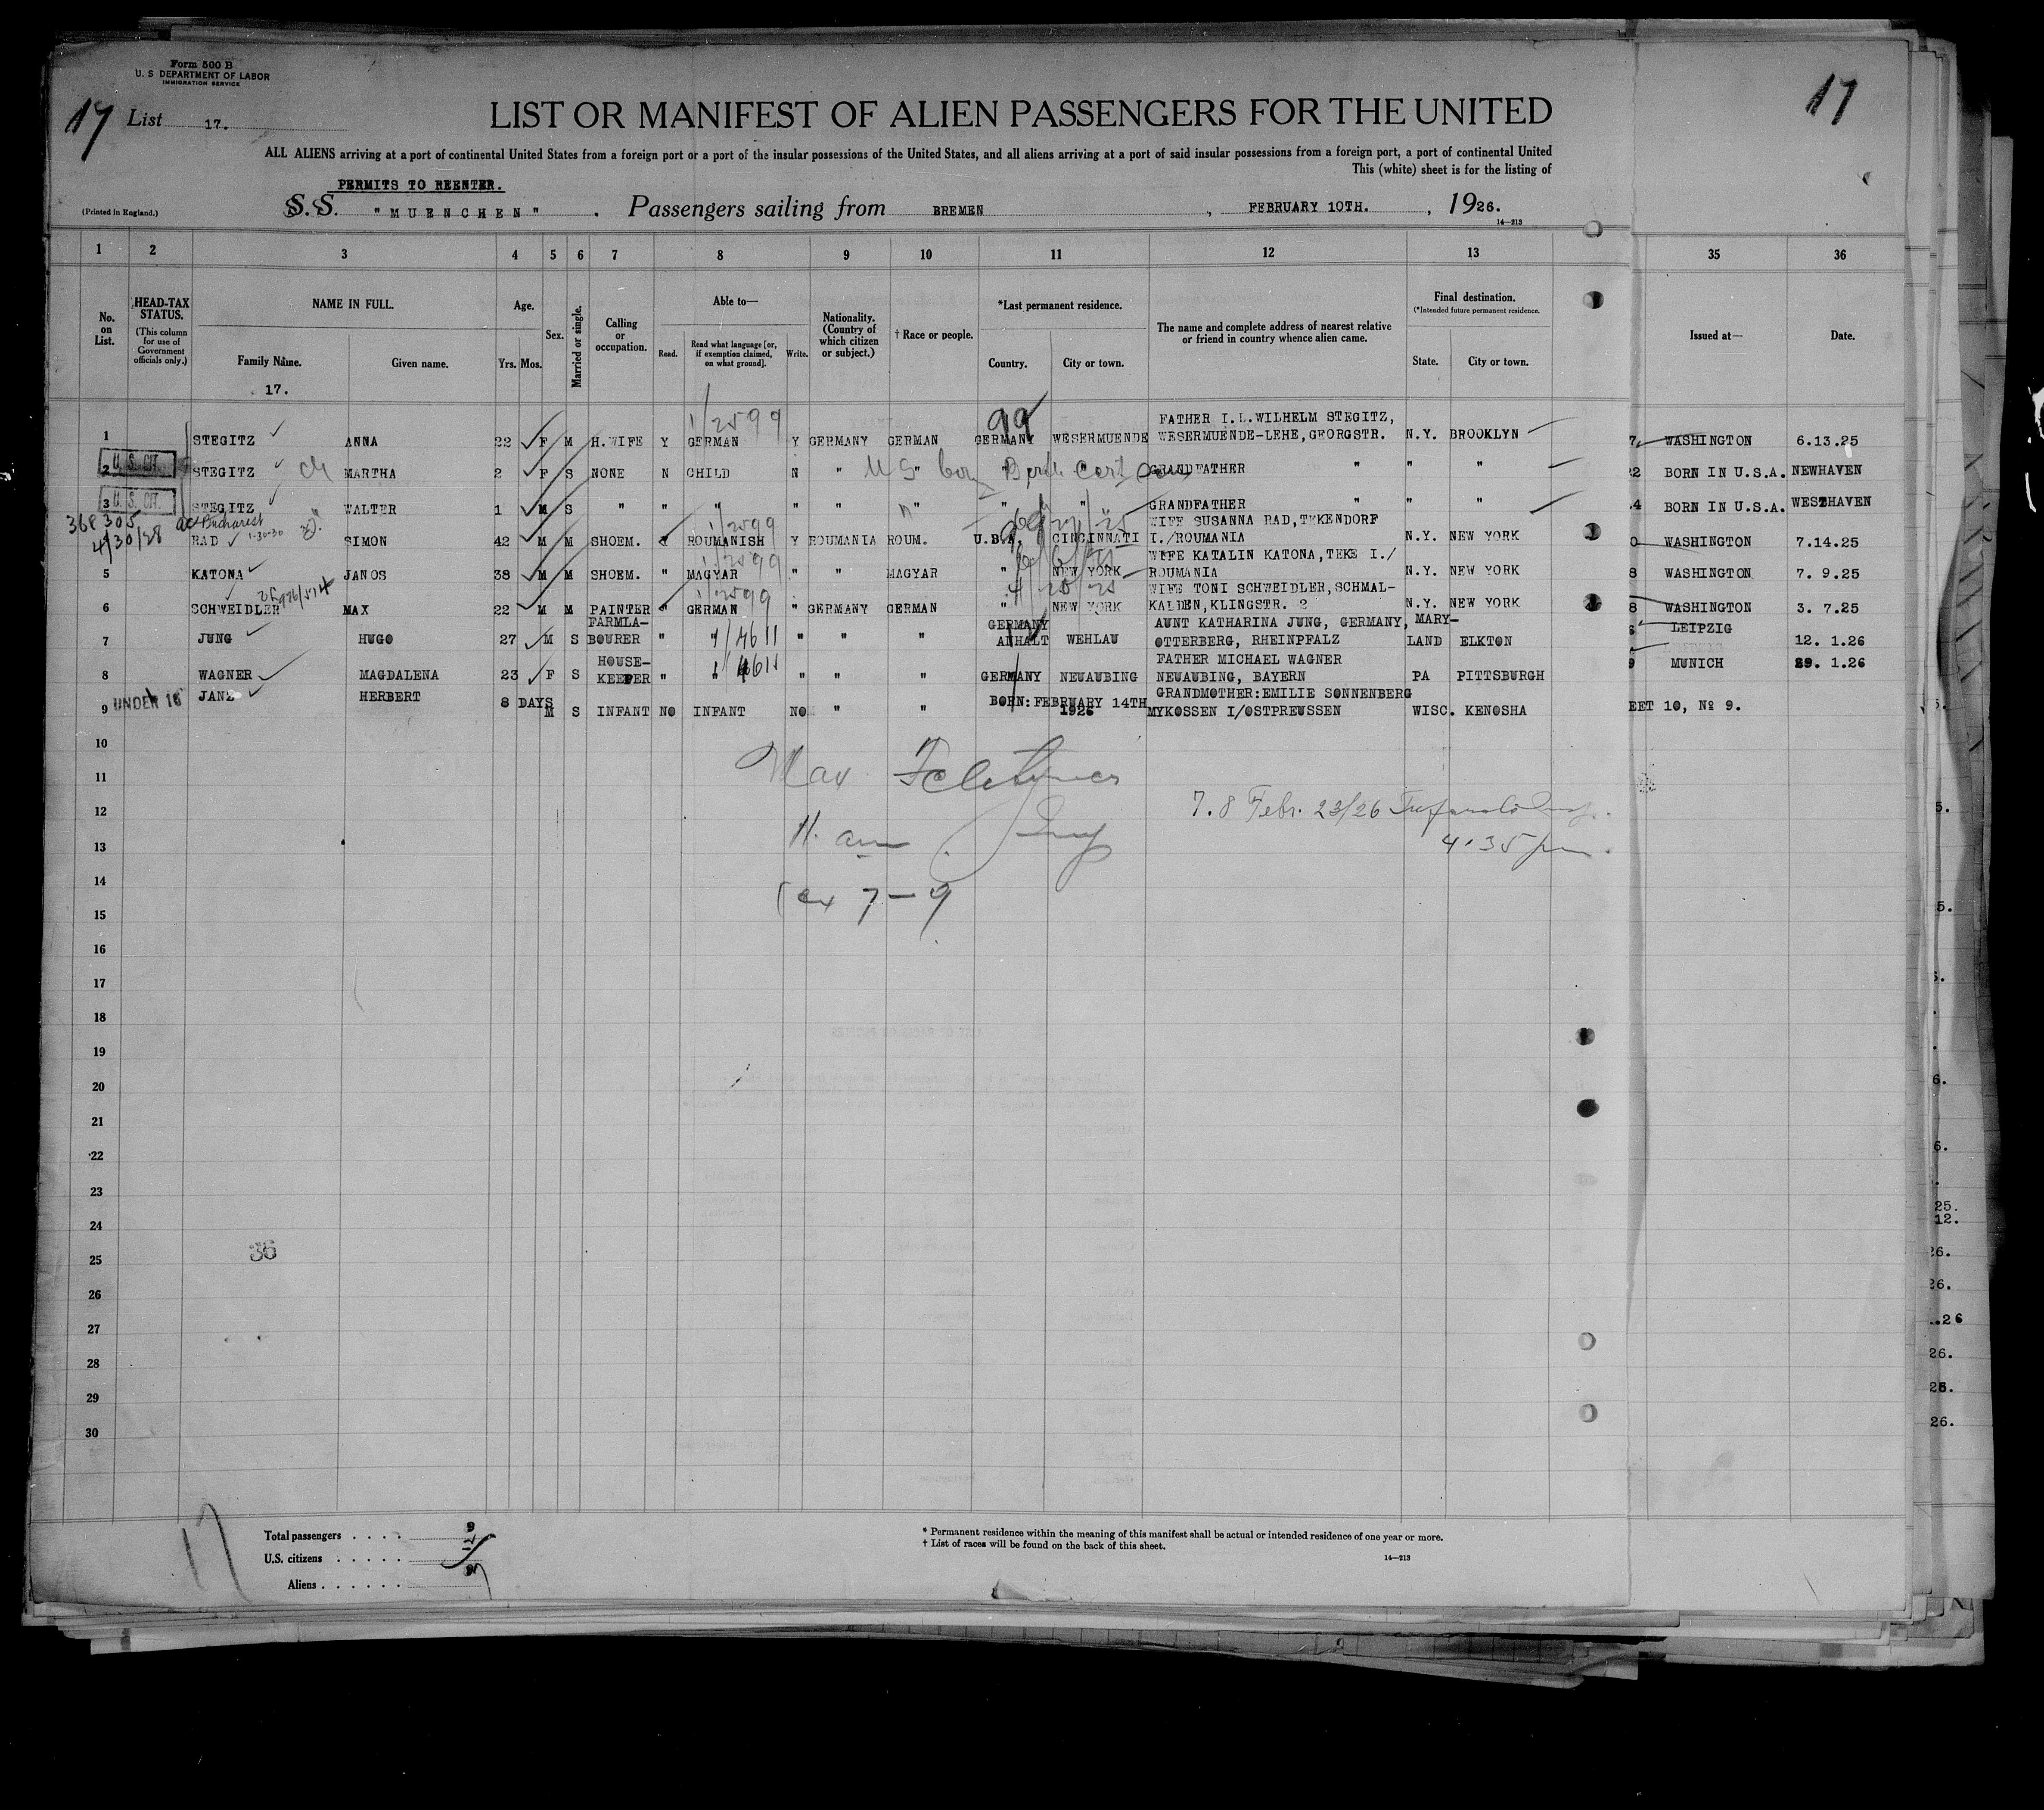 Form 500 B
U. S DEPARTMENT OF LABOR
IMMIGRATION SERVICE
17 List 17.
17
LIST OR MANIFEST OF ALIEN PASSENGERS FOR THE UNITED
ALL ALIENS arriving at a port of continental United States from a foreign port or a port of the insular possessions of the United States, and all aliens arriving at a port of said insular possessions from a foreign port, a port of continental United
This (white) sheet is for the listing of
PERMITS TO REENTER.
(Printed in England.) S. S. "MUENCHEN" . Passengers sailing from BREMEN , FEBRUARY 10TH. , 1926.
14—213
1 2 3 4 5 6 7 8 9 10 11 12 13 35 36
No. on List.
HEAD-TAX STATUS.
(This column for use of Government officials only.)
NAME IN FULL.
Family Name.
Given name.
17.
Age.
Yrs. Mos.
Sex.
Married or single.
Calling or occupation.
Able to—
Read.
Read what language [or, if exemption claimed, on what ground].
Write.
Nationality. (Country of which citizen or subject.)
† Race or people.
*Last permanent residence.
Country.
City or town.
The name and complete address of nearest relative or friend in country whence alien came.
Final destination.
(*Intended future permanent residence.
State.
City or town.
Issued at—
Date.
1/2599 99
FATHER I.L.WILHELM STEGITZ,
1 STEGITZ ANNA 22 F M H.WIFE Y GERMAN Y GERMANY GERMAN GERMANY WESERMUENDE WESERMUENDE-LEHE, GEORGSTR. N.Y. BROOKLYN 7, WASHINGTON 6.13.25
U. S. CIT.
2 STEGITZ ch MARTHA 2 F S NONE N CHILD N " US born Birth Cert GRANDFATHER " " " 22 BORN IN U.S.A. NEWHAVEN
U. S. CIT.
3 STEGITZ WALTER 1 M S " " " " " " " " GRANDFATHER " " " .4 BORN IN U.S.A. WESTHAVEN
368305 Bucharest 1-30-30
4/30/28
1/2599
WIFE SUSANNA RAD, TEKENDORF
RAD SIMON 42 M M SHOEM. Y ROUMANISH Y ROUMANIA ROUM. U.S.A. CINCINNATI I./ROUMANIA N.Y. NEW YORK 0 WASHINGTON 7.14.25
1/2599
WIFE KATALIN KATONA, TEKE I./
5 KATONA JANOS 38 M M SHOEM. " MAGYAR " " MAGYAR " NEW YORK ROUMANIA N.Y. NEW YORK 8 WASHINGTON 7. 9.25
1/2599 4/25/25
WIFE TONI SCHWEIDLER, SCHMAL-
6 SCHWEIDLER MAX 22 M M PAINTER " GERMAN " GERMANY GERMAN " NEW YORK KALDEN, KLINGSTR. 2 N.Y. NEW YORK 8 WASHINGTON 3. 7.25
FARMLA- GERMANY AUNT KATHARINA JUNG, GERMANY, MARY- LEIPZIG
7 JUNG HUGO 27 M S BOURER " " 1/4611 " " " ANHALT WEHLAU OTTERBERG, RHEINPFALZ LAND ELKTON 12. 1.26
HOUSE- FATHER MICHAEL WAGNER
8 WAGNER MAGDALENA 23 F S KEEPER " " 1/4611 " " " GERMANY NEUAUBING NEUAUBING, BAYERN PA PITTSBURGH 9 MUNICH 29. 1.26
UNDER 16 JANZ HERBERT 8 DAYS BORN: FEBRUARY 14TH GRANDMOTHER: EMILIE SONNENBERG
9 M S INFANT NO INFANT NO " " 1926 MYKOSSEN I/OSTPREUSSEN WISC. KENOSHA EET 10, Nº 9.
10
Max
11
7.8 Febr. 23/26
12
11 am
13
4.35 pm.
14
(ex 7-9
15
16
17
18
19
20
21
22
23
24
36
25
26
27
28
29
30
17
Total passengers . . . . 9
U.S. citizens . . . . . .
Aliens . . . . . .
* Permanent residence within the meaning of this manifest shall be actual or intended residence of one year or more.
† List of races will be found on the back of this sheet.
14—213